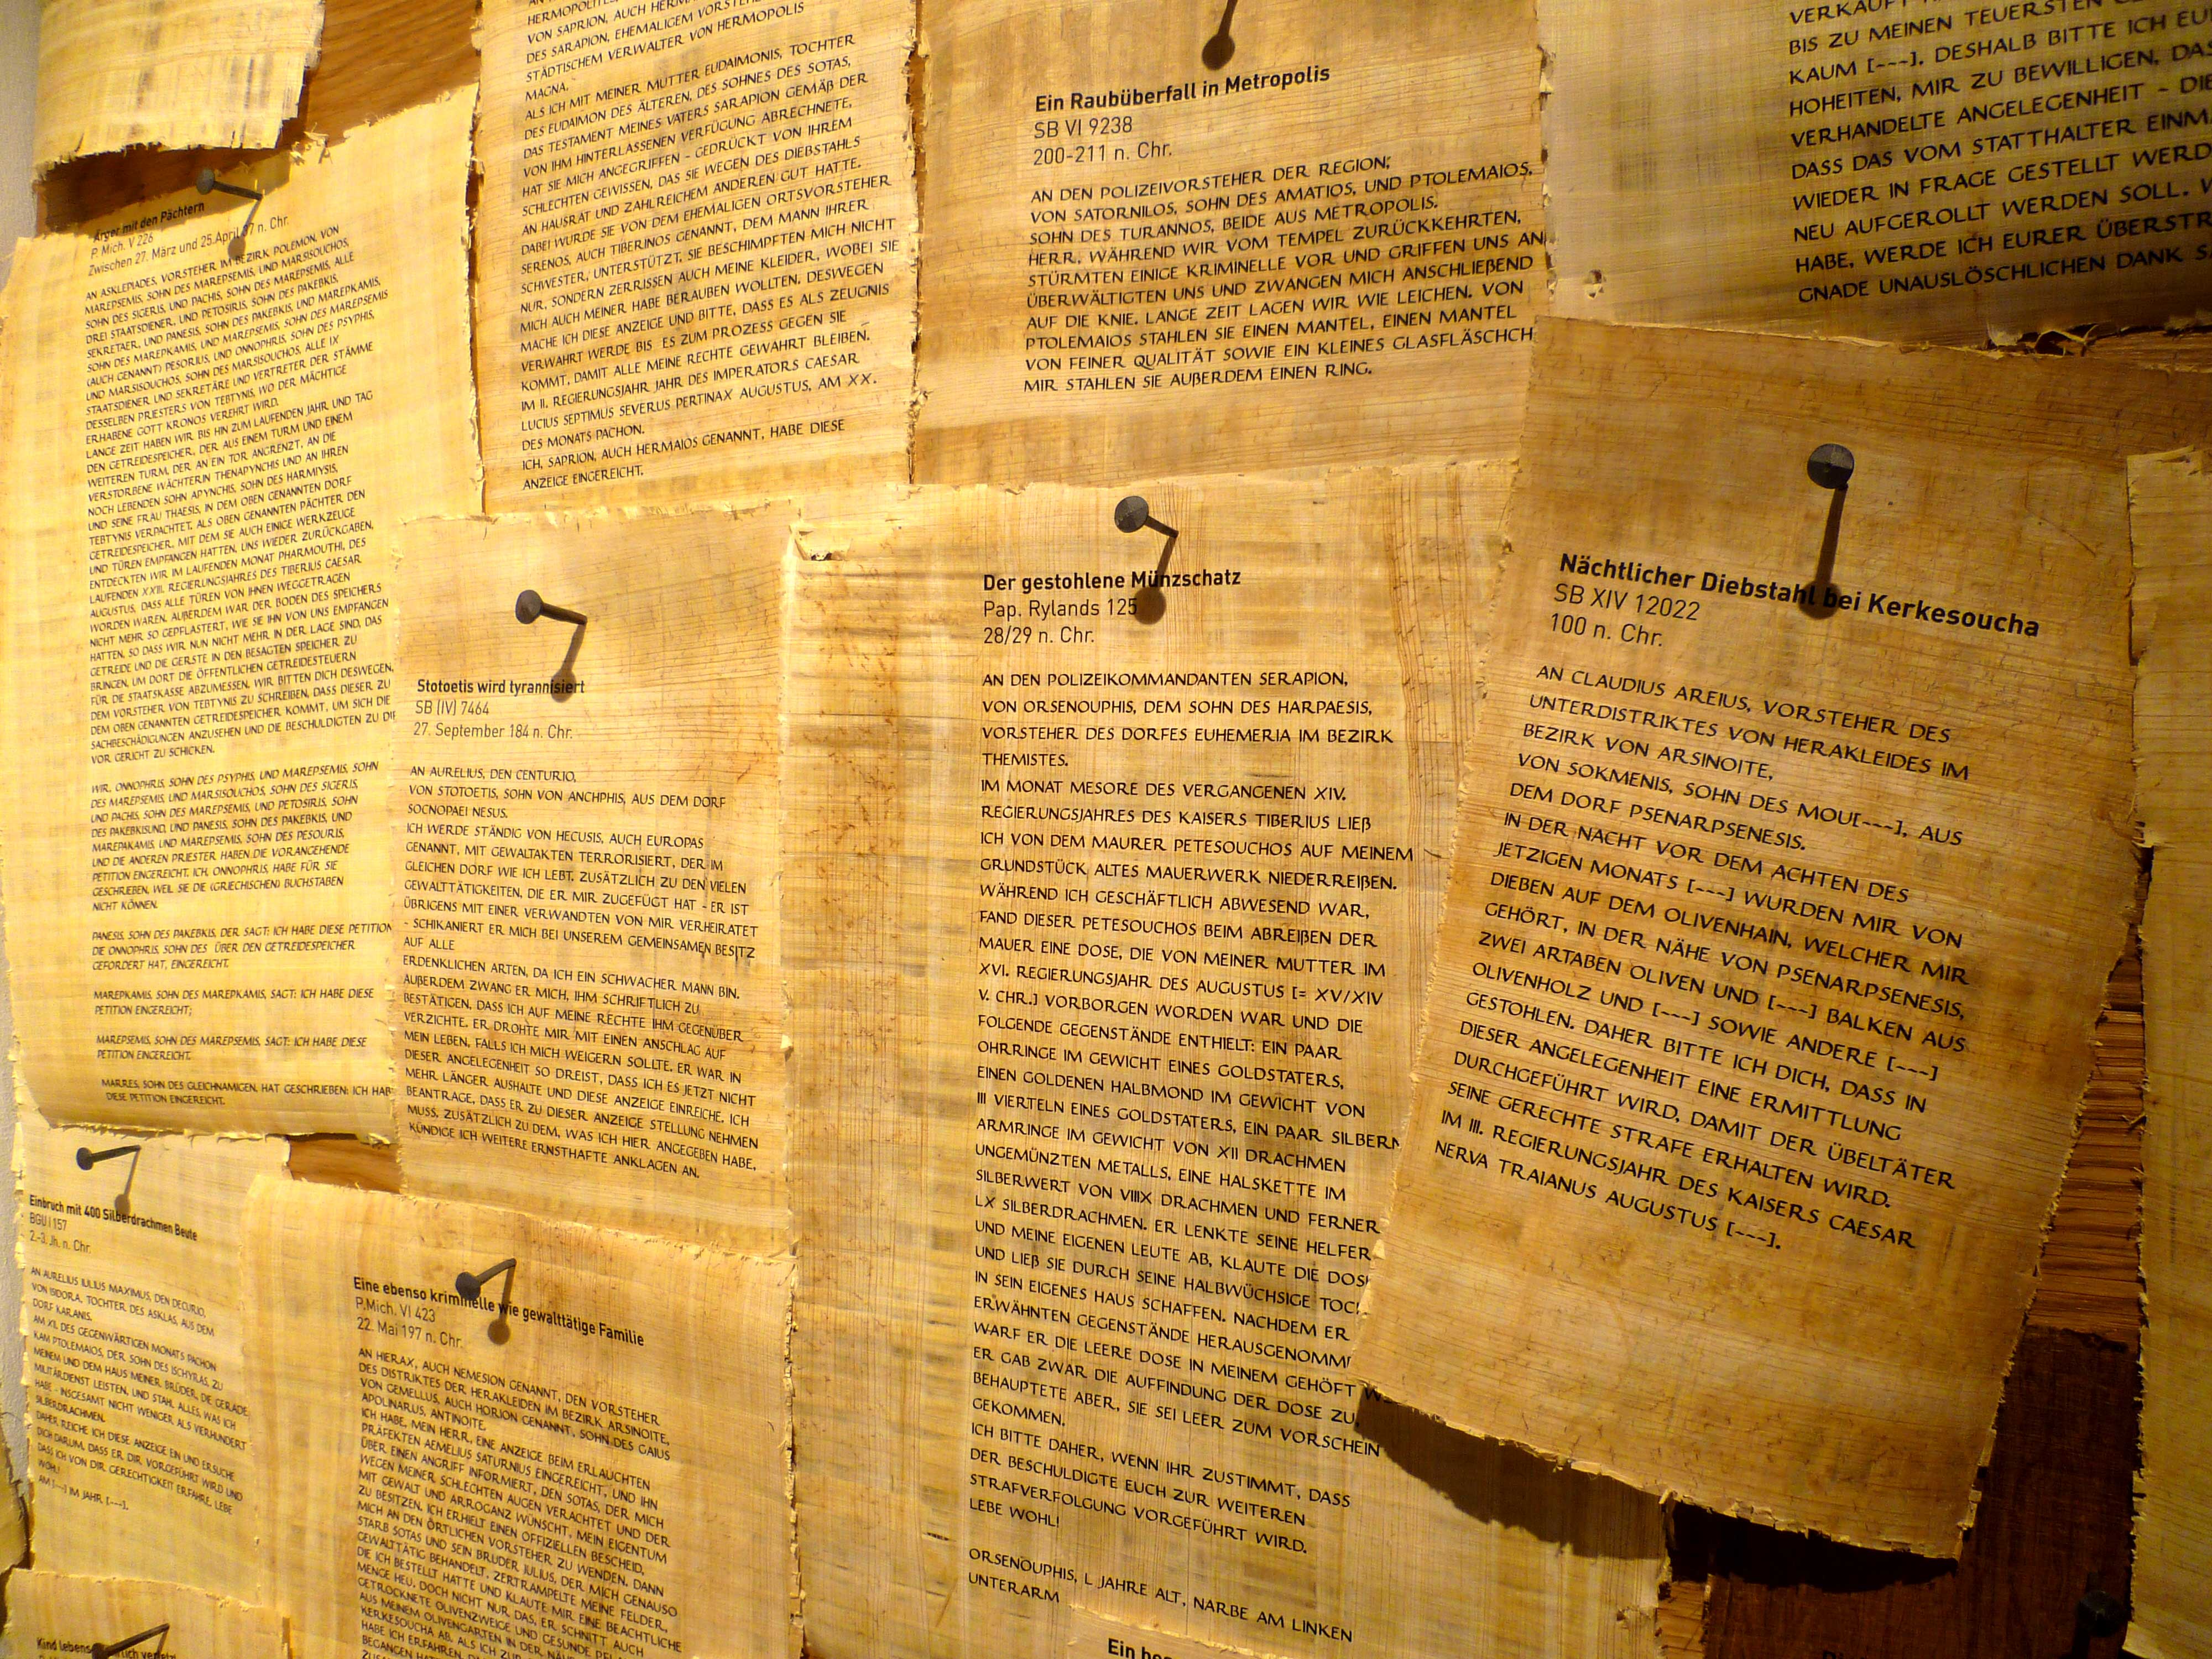 HERMOPOLITES,
VON SAPRION, AUCH
DES SARAPION, EHEMALIGEM
STÄDTISCHEM VERWALTER VON HERMOPOLIS
MAGNA.
ALS ICH MIT MEINER MUTTER EUDAIMONIS, TOCHTER
DES EUDAIMON DES ÄLTEREN, DES SOHNES DES SOTAS,
DAS TESTAMENT MEINES VATERS SARAPION GEMÄß DER
VON IHM HINTERLASSENEN VERFÜGUNG ABRECHNETE,
HAT SIE MICH ANGEGRIFFEN - GEDRÜCKT VON IHREM
SCHLECHTEN GEWISSEN, DAS SIE WEGEN DES DIEBSTAHLS
AN HAUSRAT UND ZAHLREICHEM ANDEREN GUT HATTE.
DABEI WURDE SIE VON DEM EHEMALIGEN ORTSVORSTEHER
SERENOS, AUCH TIBERINOS GENANNT, DEM MANN IHRER
SCHWESTER, UNTERSTÜTZT. SIE BESCHIMPFTEN MICH NICHT
NUR, SONDERN ZERRISSEN AUCH MEINE KLEIDER, WOBEI SIE
MICH AUCH MEINER HABE BERAUBEN WOLLTEN. DESWEGEN
MACHE ICH DIESE ANZEIGE UND BITTE, DASS ES ALS ZEUGNIS
VERWAHRT WERDE BIS ES ZUM PROZESS GEGEN SIE
KOMMT, DAMIT ALLE MEINE RECHTE GEWAHRT BLEIBEN.
IM II. REGIERUNGSJAHR JAHR DES IMPERATORS CAESAR
LUCIUS SEPTIMUS SEVERUS PERTINAX AUGUSTUS, AM XX.
DES MONATS PACHON.
ICH, SAPRION, AUCH HERMAIOS GENANNT, HABE DIESE
ANZEIGE EINGEREICHT.
Ein Raubüberfall in Metropolis
SB VI 9238
200-211 n. Chr.
AN DEN POLIZEIVORSTEHER DER REGION;
VON SATORNILOS, SOHN DES AMATIOS, UND PTOLEMAIOS,
SOHN DES TURANNOS, BEIDE AUS METROPOLIS.
HERR, WÄHREND WIR VOM TEMPEL ZURÜCKKEHRTEN,
STÜRMTEN EINIGE KRIMINELLE VOR UND GRIFFEN UNS AN
ÜBERWÄLTIGTEN UNS UND ZWANGEN MICH ANSCHLIEßEND
AUF DIE KNIE. LANGE ZEIT LAGEN WIR WIE LEICHEN. VON
PTOLEMAIOS STAHLEN SIE EINEN MANTEL, EINEN MANTEL
VON FEINER QUALITÄT SOWIE EIN KLEINES GLASFLÄSCHCH
MIR STAHLEN SIE AUßERDEM EINEN RING.
VERKAUFT
BIS ZU MEINEN TEUERSTEN
KAUM [---]. DESHALB BITTE ICH
HOHEITEN, MIR ZU BEWILLIGEN,
VERHANDELTE ANGELEGENHEIT - DIE
DASS DAS VOM STATTHALTER EINM
WIEDER IN FRAGE GESTELLT WERD
NEU AUFGEROLLT WERDEN SOLL.
HABE, WERDE ICH EURER ÜBERSTR
GNADE UNAUSLÖSCHLICHEN DANK
Ärger mit den Pächtern
P. Mich. V 226
Zwischen 27. März und 25.April 37 n. Chr.
AN ASKLEPIADES, VORSTEHER IM BEZIRK POLEMON, VON
MAREPSEMIS, SOHN DES MAREPSEMIS, UND MARSISOUCHOS,
SOHN DES SIGERIS, UND PACHIS, SOHN DES MAREPSEMIS, ALLE
DREI STAATSDIENER, UND PETOSIRIS, SOHN DES PAKEBKIS,
SEKRETAER, UND PANESIS, SOHN DES PAKEBKIS, UND MAREPKAMIS,
SOHN DES MAREPKAMIS, UND MAREPSEMIS, SOHN DES MAREPSEMIS
(AUCH GENANNT) PESORIUS, UND ONNOPHRIS, SOHN DES PSYPHIS,
UND MARSISOUCHOS, SOHN DES MARSISOUCHOS, ALLE IX
STAATSDIENER UND SEKRETÄRE UND VERTRETER DER STÄMME
DESSELBEN PRIESTERS VON TEBTYNIS, WO DER MÄCHTIGE
ERHABENE GOTT KRONOS VEREHRT WIRD.
LANGE ZEIT HABEN WIR BIS HIN ZUM LAUFENDEN JAHR UND TAG
DEN GETREIDESPEICHER, DER AUS EINEM TURM UND EINEM
WEITEREN TURM, DER AN EIN TOR ANGRENZT, AN DIE
VERSTORBENE WÄCHTERIN THENAPYNCHIS UND AN IHREN
NOCH LEBENDEN SOHN APYNCHIS, SOHN DES HARMIYSIS,
UND SEINE FRAU THAESIS, IN DEM OBEN GENANNTEN DORF
TEBTYNIS VERPACHTET. ALS OBEN GENANNTEN PÄCHTER DEN
GETREIDESPEICHER, MIT DEM SIE AUCH EINIGE WERKZEUGE
UND TÜREN EMPFANGEN HATTEN, UNS WIEDER ZURÜCKGABEN,
ENTDECKTEN WIR IM LAUFENDEN MONAT PHARMOUTHI, DES
LAUFENDEN XXIII. REGIERUNGSJAHRES DES TIBERIUS CAESAR
AUGUSTUS, DASS ALLE TÜREN VON IHNEN WEGGETRAGEN
WORDEN WAREN. AUßERDEM WAR DER BODEN DES SPEICHERS
NICHT MEHR SO GEPFLASTERT, WIE SIE IHN VON UNS EMPFANGEN
HATTEN, SO DASS WIR NUN NICHT MEHR IN DER LAGE SIND, DAS
GETREIDE UND DIE GERSTE IN DEN BESAGTEN SPEICHER ZU
BRINGEN, UM DORT DIE ÖFFENTLICHEN GETREIDESTEUERN
FÜR DIE STAATSKASSE ABZUMESSEN. WIR BITTEN DICH DESWEGEN,
DEM VORSTEHER VON TEBTYNIS ZU SCHREIBEN, DASS DIESER ZU
DEM OBEN GENANNTEN GETREIDESPEICHER KOMMT, UM SICH DIE
SACHBESCHÄDIGUNGEN ANZUSEHEN UND DIE BESCHULDIGTEN ZU DIR
VOR GERICHT ZU SCHICKEN.
WIR, ONNOPHRIS, SOHN DES PSYPHIS, UND MAREPSEMIS, SOHN
DES MAREPSEMIS, UND MARSISOUCHOS, SOHN DES SIGERIS,
UND PACHIS, SOHN DES MAREPSEMIS, UND PETOSIRIS, SOHN
DES PAKEBKISUND, UND PANESIS, SOHN DES PAKEBKIS, UND
MAREPAKAMIS, UND MAREPSEMIS, SOHN DES PESOURIS,
UND DIE ANDEREN PRIESTER HABEN DIE VORANGEHENDE
PETITION EINGEREICHT. ICH, ONNOPHRIS, HABE FÜR SIE
GESCHRIEBEN, WEIL SIE DIE (GRIECHISCHEN) BUCHSTABEN
NICHT KÖNNEN.
PANESIS, SOHN DES PAKEBKIS, DER SAGT: ICH HABE DIESE PETITION
DIE ONNOPHRIS, SOHN DES ÜBER DEN GETREIDESPEICHER
GEFORDERT HAT, EINGEREICHT.
MAREPKAMIS, SOHN DES MAREPKAMIS, SAGT: ICH HABE DIESE
PETITION EINGEREICHT;
MAREPSEMIS, SOHN DES MAREPSEMIS, SAGT: ICH HABE DIESE
PETITION EINGEREICHT.
MARRES, SOHN DES GLEICHNAMIGEN, HAT GESCHRIEBEN: ICH HAB
DIESE PETITION EINGEREICHT.
Stotoetis wird tyrannisiert
SB (IV) 7464
27. September 184 n. Chr.
AN AURELIUS, DEN CENTURIO,
VON STOTOETIS, SOHN VON ANCHPHIS, AUS DEM DORF
SOCNOPAEI NESUS.
ICH WERDE STÄNDIG VON HECUSIS, AUCH EUROPAS
GENANNT, MIT GEWALTAKTEN TERRORISIERT, DER IM
GLEICHEN DORF WIE ICH LEBT. ZUSÄTZLICH ZU DEN VIELEN
GEWALTTÄTIGKEITEN, DIE ER MIR ZUGEFÜGT HAT - ER IST
ÜBRIGENS MIT EINER VERWANDTEN VON MIR VERHEIRATET
- SCHIKANIERT ER MICH BEI UNSEREM GEMEINSAMEN BESITZ
AUF ALLE
ERDENKLICHEN ARTEN, DA ICH EIN SCHWACHER MANN BIN.
AUßERDEM ZWANG ER MICH, IHM SCHRIFTLICH ZU
BESTÄTIGEN, DASS ICH AUF MEINE RECHTE IHM GEGENÜBER
VERZICHTE. ER DROHTE MIR MIT EINEN ANSCHLAG AUF
MEIN LEBEN, FALLS ICH MICH WEIGERN SOLLTE. ER WAR IN
DIESER ANGELEGENHEIT SO DREIST, DASS ICH ES JETZT NICHT
MEHR LÄNGER AUSHALTE UND DIESE ANZEIGE EINREICHE. ICH
BEANTRAGE, DASS ER ZU DIESER ANZEIGE STELLUNG NEHMEN
MUSS. ZUSÄTZLICH ZU DEM, WAS ICH HIER ANGEGEBEN HABE,
KÜNDIGE ICH WEITERE ERNSTHAFTE ANKLAGEN AN.
Der gestohlene Münzschatz
Pap. Rylands 125
28/29 n. Chr.
AN DEN POLIZEIKOMMANDANTEN SERAPION,
VON ORSENOUPHIS, DEM SOHN DES HARPAESIS,
VORSTEHER DES DORFES EUHEMERIA IM BEZIRK
THEMISTES.
IM MONAT MESORE DES VERGANGENEN XIV.
REGIERUNGSJAHRES DES KAISERS TIBERIUS LIEß
ICH VON DEM MAURER PETESOUCHOS AUF MEINEM
GRUNDSTÜCK ALTES MAUERWERK NIEDERREIßEN.
WÄHREND ICH GESCHÄFTLICH ABWESEND WAR,
FAND DIESER PETESOUCHOS BEIM ABREIßEN DER
MAUER EINE DOSE, DIE VON MEINER MUTTER IM
XVI. REGIERUNGSJAHR DES AUGUSTUS [= XV/XIV
V. CHR.] VORBORGEN WORDEN WAR UND DIE
FOLGENDE GEGENSTÄNDE ENTHIELT: EIN PAAR
OHRRINGE IM GEWICHT EINES GOLDSTATERS,
EINEN GOLDENEN HALBMOND IM GEWICHT VON
III VIERTELN EINES GOLDSTATERS, EIN PAAR SILBERN
ARMRINGE IM GEWICHT VON XII DRACHMEN
UNGEMÜNZTEN METALLS, EINE HALSKETTE IM
SILBERWERT VON VIIIX DRACHMEN UND FERNER
LX SILBERDRACHMEN. ER LENKTE SEINE HELFER
UND MEINE EIGENEN LEUTE AB, KLAUTE DIE DOS
UND LIEß SIE DURCH SEINE HALBWÜCHSIGE TOC
IN SEIN EIGENES HAUS SCHAFFEN. NACHDEM ER
ERWÄHNTEN GEGENSTÄNDE HERAUSGENOMM
WARF ER DIE LEERE DOSE IN MEINEM GEHÖFT
ER GAB ZWAR DIE AUFFINDUNG DER DOSE ZU,
BEHAUPTETE ABER, SIE SEI LEER ZUM VORSCHEIN
GEKOMMEN.
ICH BITTE DAHER, WENN IHR ZUSTIMMT, DASS
DER BESCHULDIGTE EUCH ZUR WEITEREN
STRAFVERFOLGUNG VORGEFÜHRT WIRD.
LEBE WOHL!
ORSENOUPHIS, L JAHRE ALT, NARBE AM LINKEN
UNTERARM
Nächtlicher Diebstahl bei Kerkesoucha
SB XIV 12022
100 n. Chr.
AN CLAUDIUS AREIUS, VORSTEHER DES
UNTERDISTRIKTES VON HERAKLEIDES IM
BEZIRK VON ARSINOITE,
VON SOKMENIS, SOHN DES MOU[---], AUS
DEM DORF PSENARPSENESIS.
IN DER NACHT VOR DEM ACHTEN DES
JETZIGEN MONATS [---] WURDEN MIR VON
DIEBEN AUF DEM OLIVENHAIN, WELCHER MIR
GEHÖRT, IN DER NÄHE VON PSENARPSENESIS,
ZWEI ARTABEN OLIVEN UND [---] BALKEN AUS
OLIVENHOLZ UND [---] SOWIE ANDERE [---]
GESTOHLEN. DAHER BITTE ICH DICH, DASS IN
DIESER ANGELEGENHEIT EINE ERMITTLUNG
DURCHGEFÜHRT WIRD, DAMIT DER ÜBELTÄTER
SEINE GERECHTE STRAFE ERHALTEN WIRD.
IM III. REGIERUNGSJAHR DES KAISERS CAESAR
NERVA TRAIANUS AUGUSTUS [---].
Einbruch mit 400 Silberdrachmen Beute
BGU I 157
2.-3. Jh. n. Chr.
AN AURELIUS IULIUS MAXIMUS, DEN DECURIO,
VON ISIDORA, TOCHTER DES ASKLAS, AUS DEM
DORF KARANIS.
AM XI. DES GEGENWÄRTIGEN MONATS PACHON
KAM PTOLEMAIOS, DER SOHN DES ISCHYRAS, ZU
MEINEM UND DEM HAUS MEINER BRÜDER, DIE GERADE
MILITÄRDIENST LEISTEN, UND STAHL ALLES, WAS ICH
HABE - INSGESAMT NICHT WENIGER ALS VIERHUNDERT
SILBERDRACHMEN.
DAHER REICHE ICH DIESE ANZEIGE EIN UND ERSUCHE
DICH DARUM, DASS ER DIR VORGEFÜHRT WIRD UND
DASS ICH VON DIR GERECHTIGKEIT ERFAHRE. LEBE
WOHL!
AM [---] IM JAHR [---].
Eine ebenso kriminelle wie gewalttätige Familie
P.Mich. VI 423
22. Mai 197 n. Chr.
AN HIERAX, AUCH NEMESION GENANNT, DEN VORSTEHER
DES DISTRIKTES DER HERAKLEIDEN IM BEZIRK ARSINOITE,
VON GEMELLUS, AUCH HORION GENANNT, SOHN DES GAIUS
APOLINARUS, ANTINOITE.
ICH HABE, MEIN HERR, EINE ANZEIGE BEIM ERLAUCHTEN
PRÄFEKTEN AEMELIUS SATURNIUS EINGEREICHT, UND IHN
ÜBER EINEN ANGRIFF INFORMIERT, DEN SOTAS, DER MICH
WEGEN MEINER SCHLECHTEN AUGEN VERACHTET UND DER
MIT GEWALT UND ARROGANZ WÜNSCHT, MEIN EIGENTUM
ZU BESITZEN. ICH ERHIELT EINEN OFFIZIELLEN BESCHEID,
MICH AN DEN ÖRTLICHEN VORSTEHER ZU WENDEN. DANN
STARB SOTAS UND SEIN BRUDER, IULIUS, DER MICH GENAUSO
GEWALTTÄTIG BEHANDELT, ZERTRAMPELTE MEINE FELDER,
DIE ICH BESTELLT HATTE UND KLAUTE MIR EINE BEACHTLICHE
MENGE HEU. DOCH NICHT NUR DAS, ER SCHNITT AUCH
GETROCKNETE OLIVENZWEIGE UND GESUNDE
AUS MEINEM OLIVENGARTEN IN DER NÄHE
KERKESOUCHA AB. ALS ICH ZUR
HABE ICH ERFAHREN,
BEGANGEN
Kind
Ein